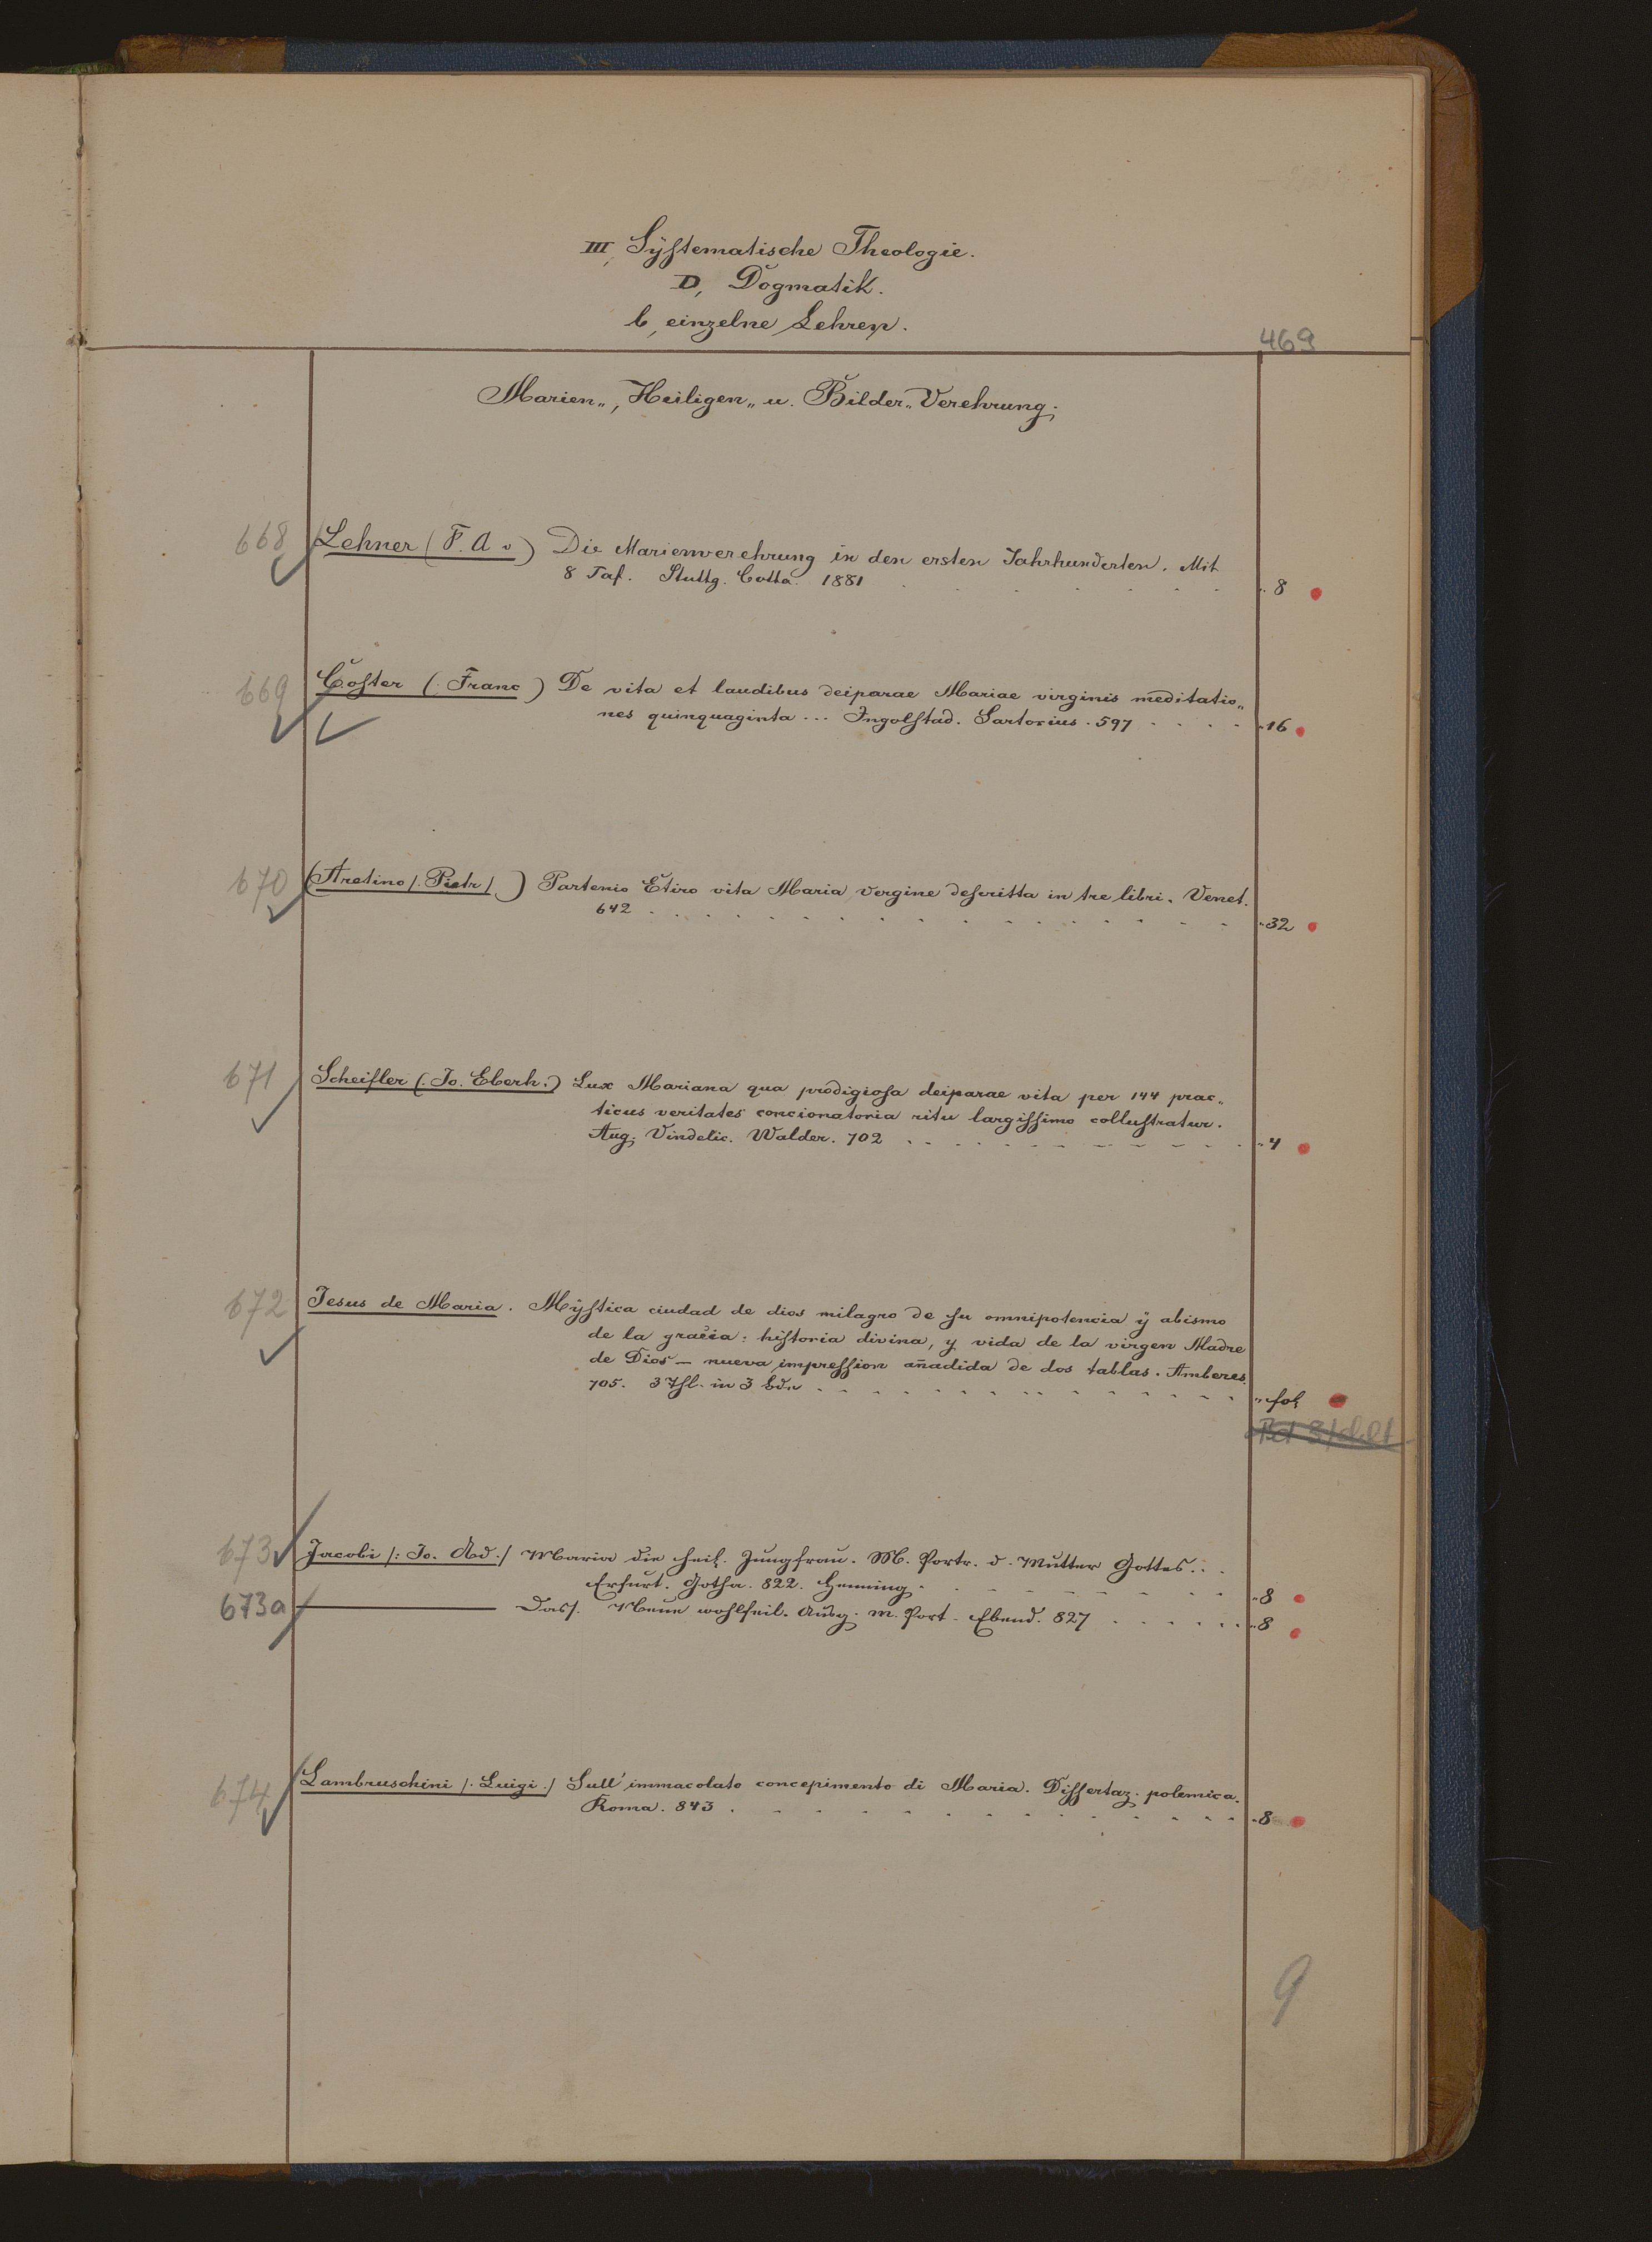 III, Systematische Theologie.
D, Dogmatik.
b, einzelne Lehren.
469
Marien-, Heiligen- u. Bilder-Verehrung.
668 Lehner (F. A v) Die Marienverehrung in den ersten Jahrhunderten. Mit
8 Taf. Stuttg. Cotta. 1881 . . . . . . „ 8
669 Coster (. Franc) De vita et laudibus deiparae Mariae virginis meditatio-
nes quinquaginta ... Ingolstad. Sartorius. 597 . . . . „ 16
670 (Aretino /. Pietr /.) Partenio Etiro vita Maria vergine descritta in tre libri. Venet.
642 . . . . . . „ 32
671 Scheifler (. Jo. Eberh.) Lux Mariana qua prodigiosa deiparae vita per 144 prac-
ticus veritates concionatoria ritu largissimo collustratur.
Aug. Vindelic. Walder. 702 . . . . . . „ 4
672 Jesus de Maria. Mÿstica ciudad de dios milagro de su omnipotencia ÿ abismo
de la gracia: historia divina, y vida de la virgen Madre
de Dios – nueva impression añadida de dos tablas. Amberes
705. 3 Thl. in 3 Bdn . . . . . . „ fol.
673 Jacobi /: Jo. Ad ./ Maria die heil. Jungfrau. M. Portr. d. Mutter Gottes . . .
Erfurt. Gotha. 822. Henning. . . . . . „ 8
673a ——— Dass. Neue wohlfeil. Ausg. m. Port. Ebend. 827 . . . . . . „ 8
674 Lambruschini /. Luigi ./ Sull' immacolato concepimento di Maria. Dissertaz. polemica.
Roma. 843 . . . . . . „ 8
9